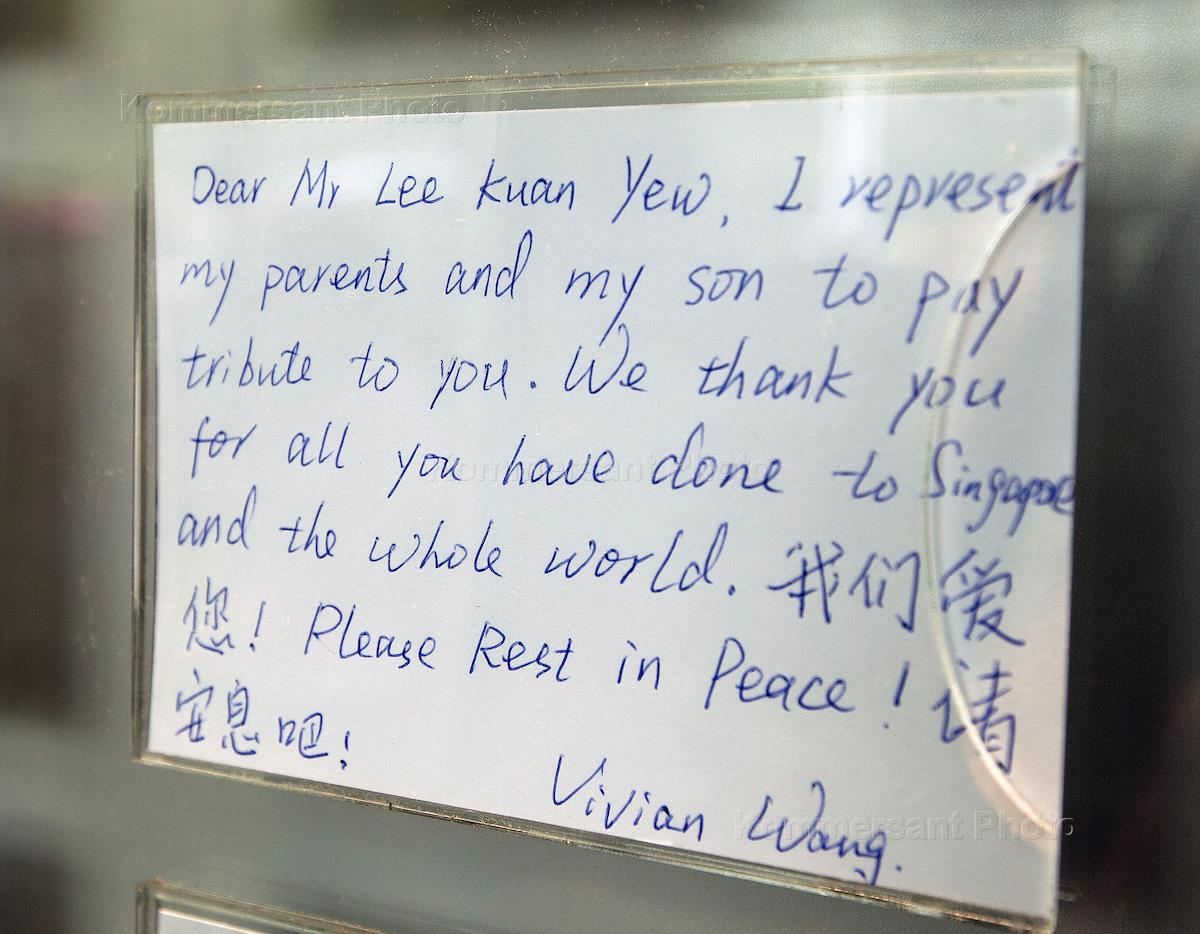 Kommersant Photo
Dear Mr Lee Kuan Yew, I represent
my parents and my son to pay
tribute to you. We thank you
for all you have done to Singapore
Kommersant Photo
and the whole world. 我们爱
您! Please Rest in Peace! 请
安息吧!
Vivian Wang.
Kommersant Photo